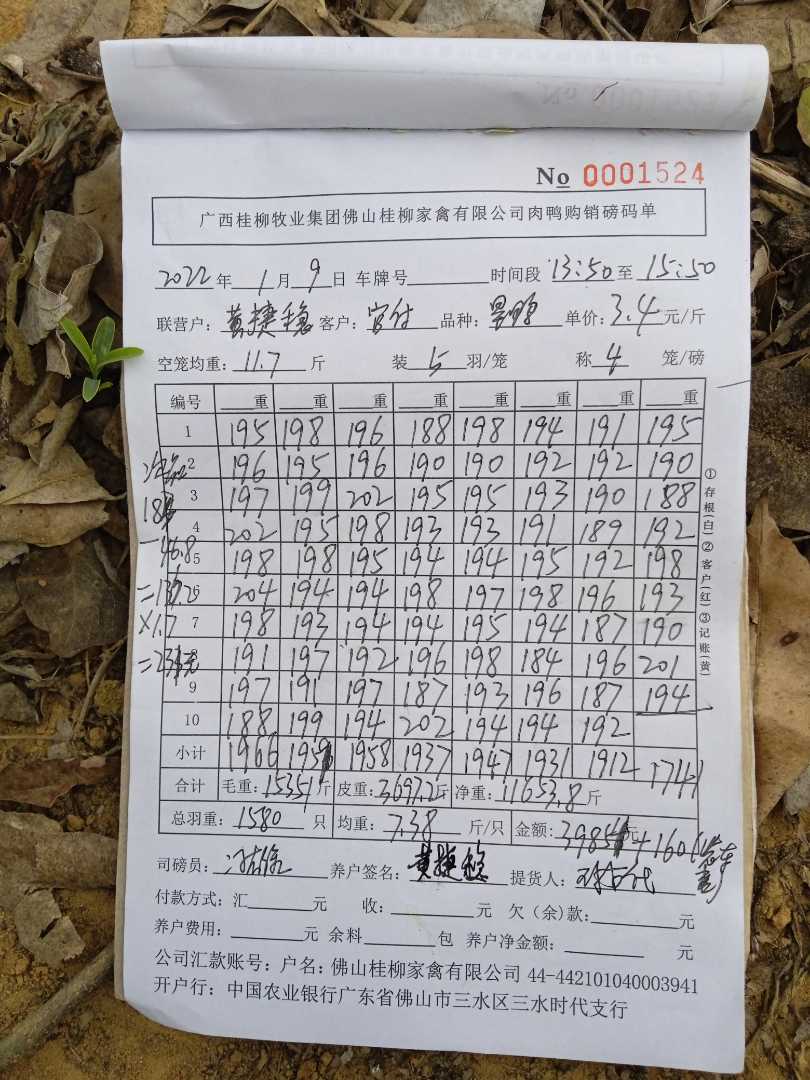 No 0001524
广西桂柳牧业集团佛山桂柳家禽有限公司肉鸭购销磅码单
2022年 1月 9日 车牌号 时间段 13:50至 15:50
联营户: 黄捷稳 客户: 官付 品种: 单价: 3.4元/斤
空笼均重: 11.7 斤 装 5 羽/笼 称 4 笼/磅
编号 重 重 重 重 重 重 重 重
1 195 198 196 188 198 194 191 195
2 196 195 196 190 190 192 192 190
3 197 199 202 195 195 193 190 188
4 202 195 198 193 193 191 189 192
5 198 198 195 194 194 195 192 198
6 204 194 194 198 197 198 196 193
7 198 193 194 194 195 194 187 190
8 191 197 192 196 198 184 196 201
9 197 191 197 187 193 196 187 194
10 188 199 194 202 194 194 192
小计 1966 1959 1958 1937 1947 1931 1912 1741
合计 毛重: 15351斤 皮重: 3697.2斤 净重: 11653.8斤
总羽重: 1580 只 均重: 7.38 斤/只 金额: 元 +160
司磅员: 养户签名: 黄捷稳 提货人:
付款方式: 汇 元 收: 元 欠(余)款: 元
养户费用: 元 余料 包 养户净金额: 元
公司汇款账号: 户名: 佛山桂柳家禽有限公司 44-442101040003941
开户行: 中国农业银行广东省佛山市三水区三水时代支行
①存根(白)②客户(红)③记账(黄)
-46.8
×1.7